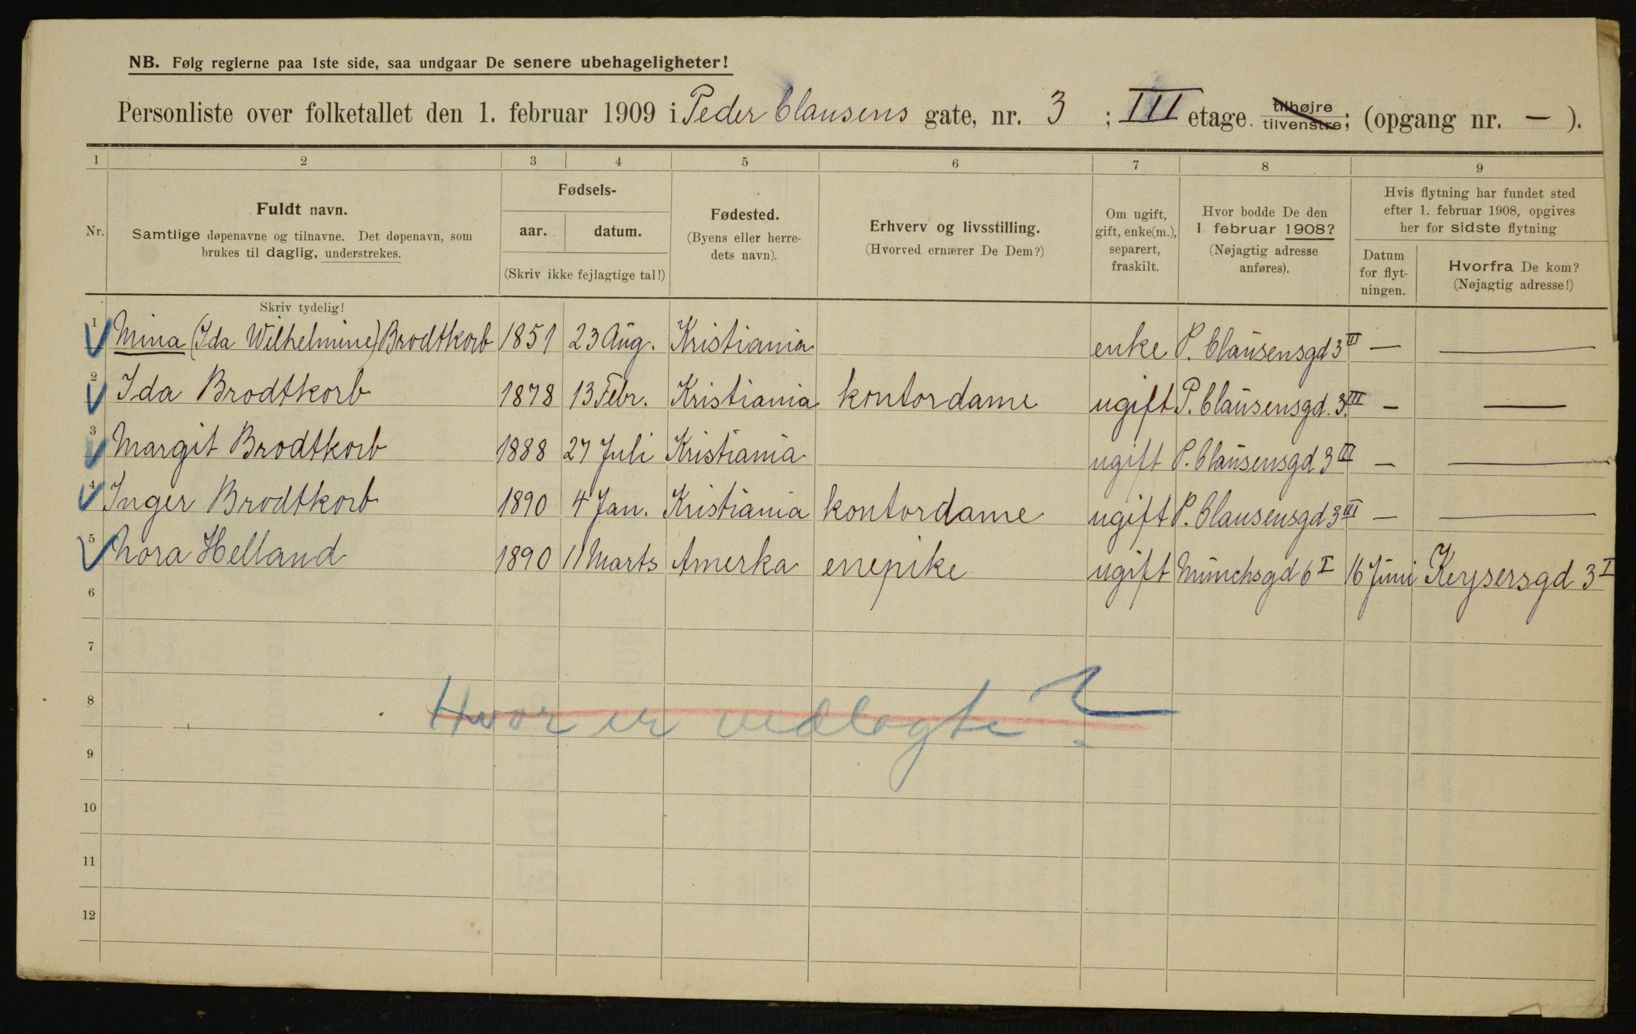 NB. Følg reglerne paa 1ste side, saa undgaar De senere ubehageligheter!
Personliste over folketallet den 1. februar 1909 i Peder Clausens gate, nr. 3 ; III etage tilhøjre tilvenstre; (opgang nr. — ).
1 2 3 4 5 6 7 8 9
Nr.
Fuldt navn.
Samtlige døpenavne og tilnavne. Det døpenavn, som
brukes til daglig, understrekes.
Skriv tydelig!
Fødsels-
aar. datum.
(Skriv ikke fejlagtige tal!)
Fødested.
(Byens eller herre-
dets navn).
Erhverv og livsstilling.
(Hvorved ernærer De Dem?)
Om ugift,
gift, enke(m.),
separert,
fraskilt.
Hvor bodde De den
1 februar 1908?
(Nøjagtig adresse
anføres).
Hvis flytning har fundet sted
efter 1. februar 1908, opgives
her for sidste flytning
Datum
for flyt-
ningen.
Hvorfra De kom?
(Nøjagtig adresse!)
1 Mina (Ida Wilhelmine) Brodtkorb 1851 23 Aug. Kristiania enke P. Clausensgd 3 III — —
2 Ida Brodtkorb 1878 13 Febr. Kristiania kontordame ugift P. Clausensgd. 3. III — —
3 Margit Brodtkorb 1888 27 Juli Kristiania ugift P. Clausensgd 3 III — —
4 Inger Brodtkorb 1890 4 Jan. Kristiania kontordame ugift P. Clausensgd 3 III — —
5 Nora Helland 1890 11 Marts Amerka enepike ugift Munchsgd 6 I 16 Juni Keysersgd 3 I
6
7
8
Hvor er vedlagte?
9
10
11
12